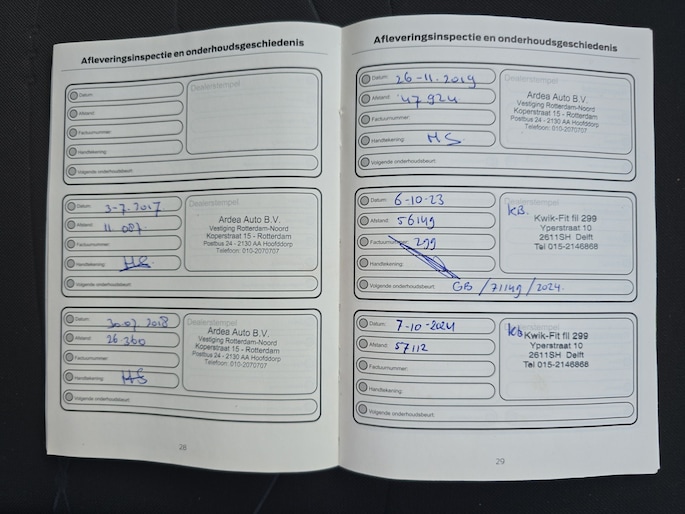 Afleveringsinspectie en onderhoudsgeschiedenis
Dealerstempel
Datum:
Afstand:
Factuurnummer:
Handtekening:
Volgende onderhoudsbeurt:
Dealerstempel
Datum: 3-7-2017
Afstand: 11.007
Factuurnummer:
Handtekening: HS
Volgende onderhoudsbeurt:
Ardea Auto B.V.
Vestiging Rotterdam-Noord
Koperstraat 15 - Rotterdam
Postbus 24 - 2130 AA Hoofddorp
Telefoon: 010-2070707
Dealerstempel
Datum: 30-07 2018
Afstand: 26360
Factuurnummer:
Handtekening: HS
Volgende onderhoudsbeurt:
Ardea Auto B.V.
Vestiging Rotterdam-Noord
Koperstraat 15 - Rotterdam
Postbus 24 - 2130 AA Hoofddorp
Telefoon: 010-2070707
28
Afleveringsinspectie en onderhoudsgeschiedenis
Dealerstempel
Datum: 26-11-2019
Afstand: 47924
Factuurnummer:
Handtekening: HS
Volgende onderhoudsbeurt:
Ardea Auto B.V.
Vestiging Rotterdam-Noord
Koperstraat 15 - Rotterdam
Postbus 24 - 2130 AA Hoofddorp
Telefoon: 010-2070707
Datum: 6-10-23
Afstand: 56149
Factuurnummer: 299
Handtekening:
Volgende onderhoudsbeurt: GB / 71149 / 2024.
KB.
Kwik-Fit fil 299
Yperstraat 10
2611SH Delft
Tel 015-2146868
Datum: 7-10-2024
Afstand: 57112
Factuurnummer:
Handtekening:
Volgende onderhoudsbeurt:
KB
Kwik-Fit fil 299
Yperstraat 10
2611SH Delft
Tel 015-2146868
29